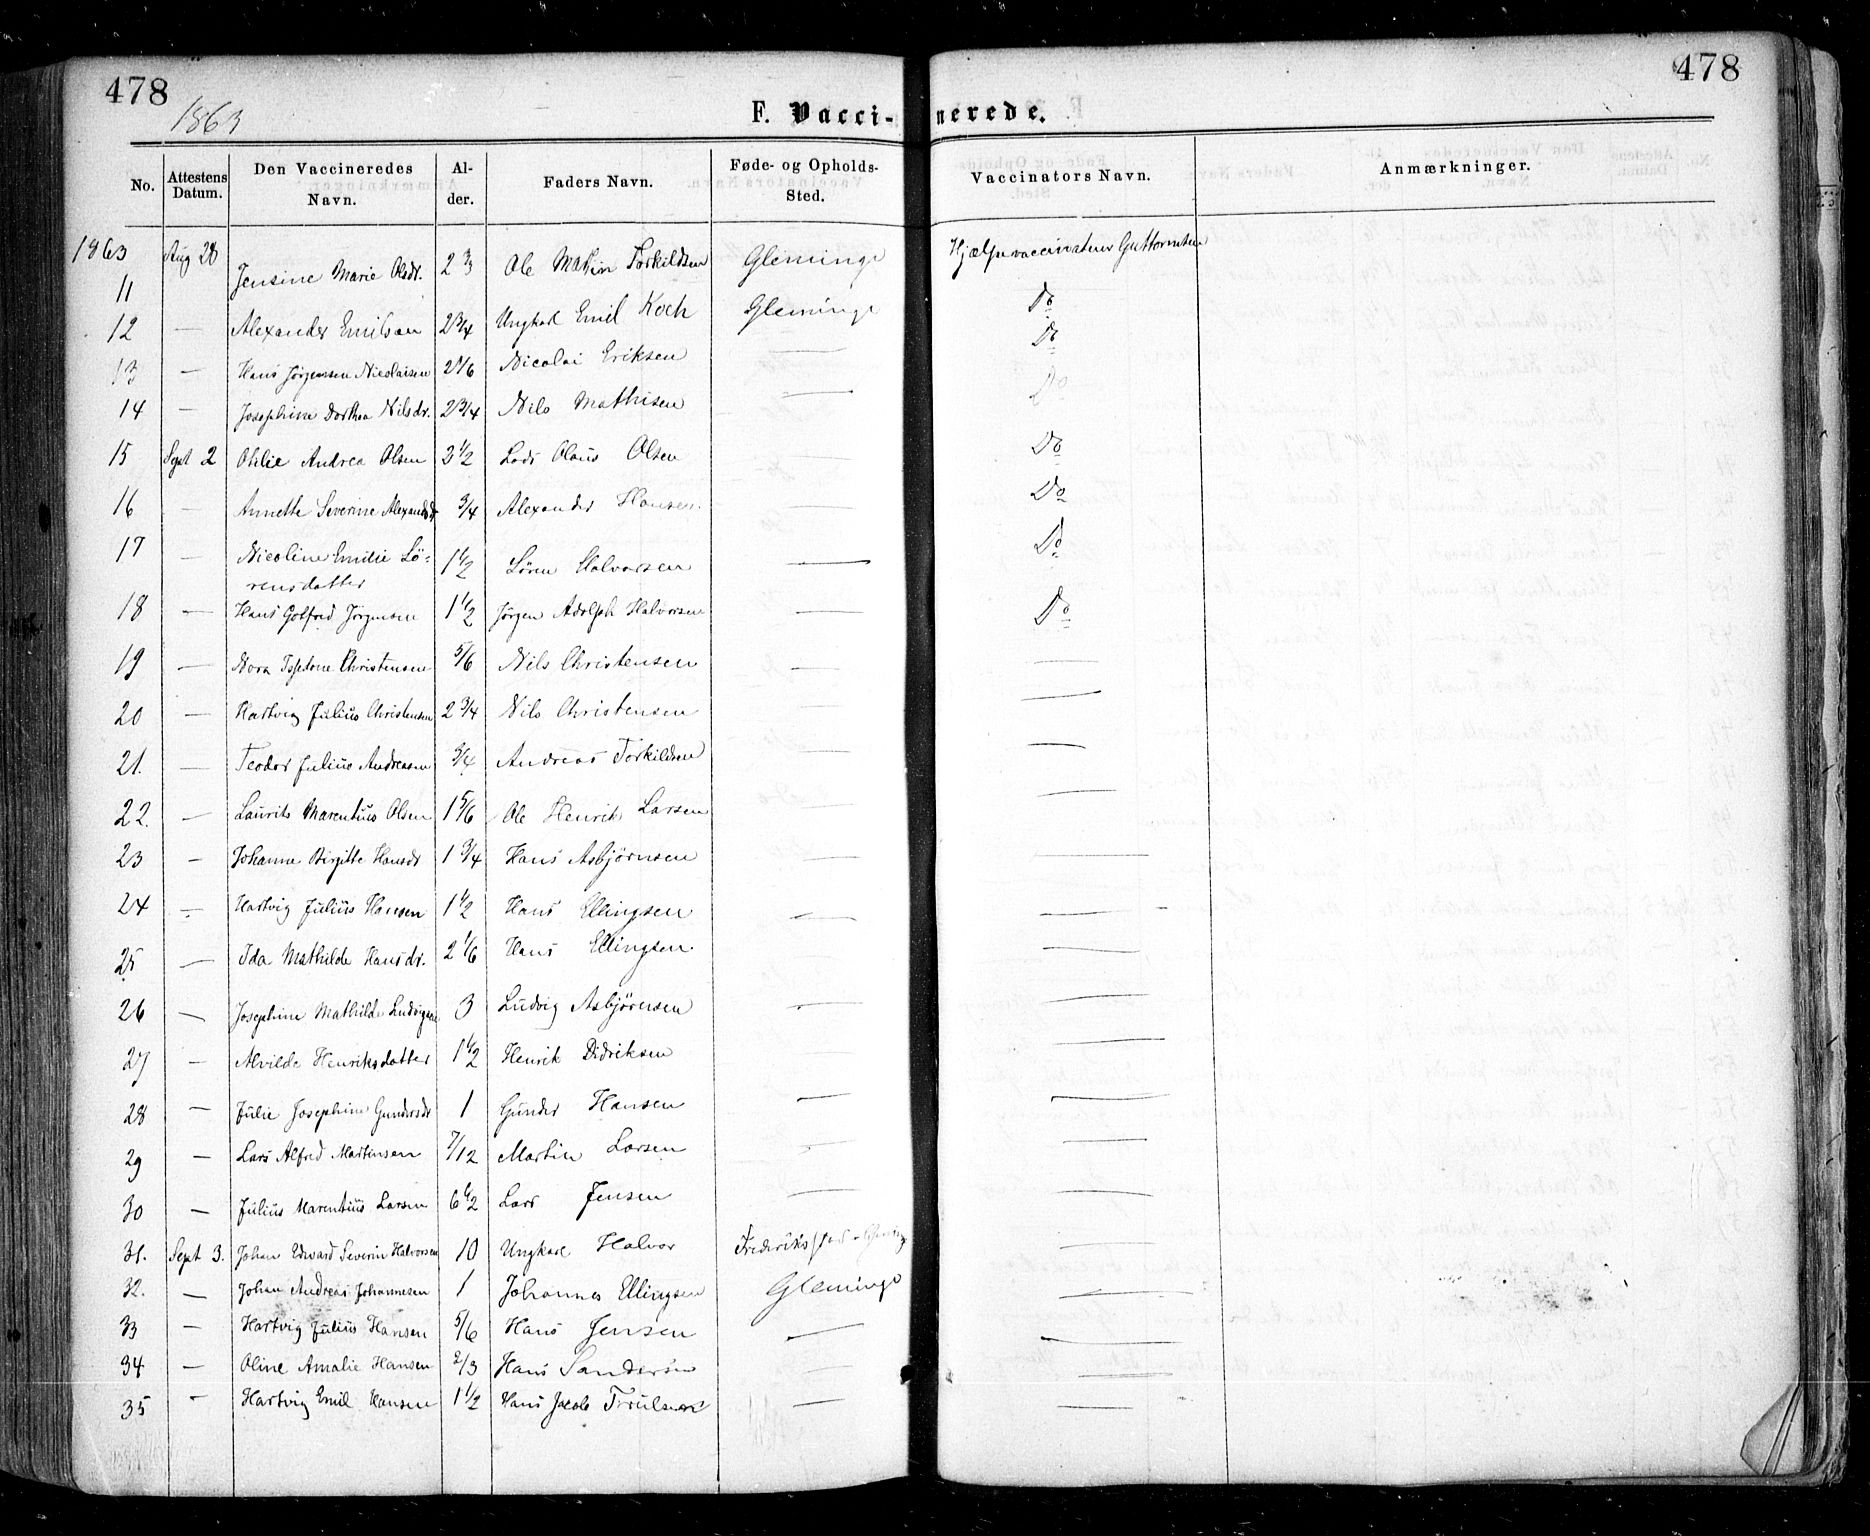 478
478
1863
F. Vacci-nerede.
No. Attestens Datum. Den Vaccineredes Navn. Al-der. Faders Navn. Føde- og Opholds-Sted. Vaccinators Navn. Anmærkninger.
1863 Aug 28
11 Jensine Marie Olsdr. 2 2/3 Ole Martin Torkildsen Glemminge Hjælpevaccinateur Guttormsen
12 — Alexander Emilsen 2 3/4 Ungkarl Emil Koch Glemminge Do
13 — Hans Jørgensen Nicolaisen 2 1/6 Nicolai Eriksen — Do
14 — Josephine Dorthea Nilsdr. 2 3/4 Nils Mathisen — Do
15 Sept 2 Othlie Andrea Olsen 3 1/2 Lods Olaus Olsen Do
16 — Annette Severine Alexandsd 3/4 Alexander Hansen Do
17 — Nicoline Emilie Sö-
rensdatter 1 1/2 Sören Halvorsen — Do
18 — Hans Gotfred Jörgensen 1 1/2 Jörgen Adolph Halvorsen — Do
19 — Nora Christensen 5/6 Nils Christensen — —
20 — Hartvig Julius Christensen 2 3/4 Nils Christensen — —
21. — Teodor Julius Andreasen 3/4 Andreas Torkildsen — —
22. — Laurits Marentius Olsen 1 5/6 Ole Henrik Larsen — —
23 — Johanne Birgitte Hansdr 1 3/4 Hans Asbjörnsen — —
24 — Hartvig Julius Hansen 1 1/2 Hans Ellingsen — —
25 — Ida Mathilde Hansdr. 2 1/6 Hans Ellingsen — —
26 — Josephine Mathilde Ludvigsen 3 Ludvig Asbjörnsen — —
27 — Alvilde Henriksdatter 1 1/2 Henrik Didriksen — —
28 — Julie Josephine Gundersdr 1 Gunder Hansen — —
29 — Lars Alfred Martinsen 7/12 Martin Larsen — —
30 — Julius Marentius Larsen 6 1/2 Lars Jensen — —
31. Sept 3. Johan Edvard Severin Halvorsen 10 Ungkarl Halvor —
32. — Johan Andreas Johannesen 1 Johannes Ellingsen Glemminge —
33 — Hartvig Julius Hansen 5/6 Hans Jensen — —
34 — Oline Amalie Hansen 2/3 Hans Sandersen — —
35 — Hartvig Emil Hansen 1 1/2 Hans Jacob Trulsen — —